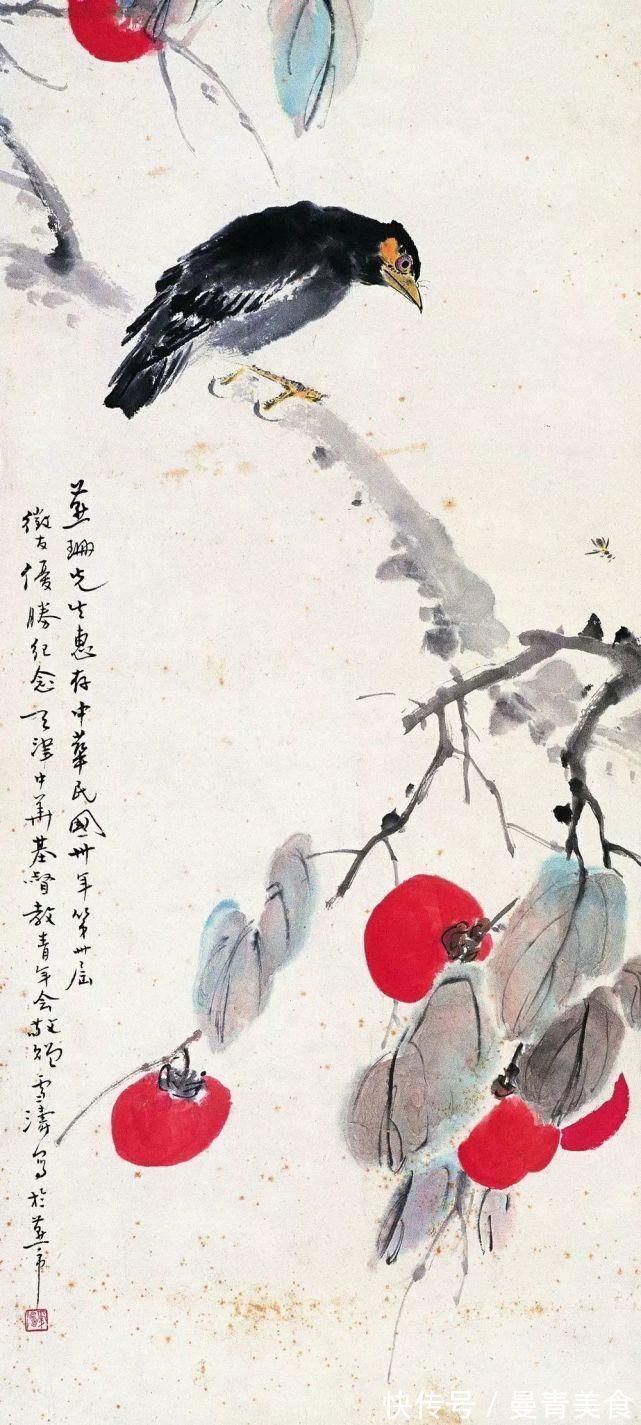 燕珊先生惠存中華民國卅年第卅屆
徵友優勝紀念天津中華基督教青年会敬贈雪濤寫於燕市
快传号 / 曼青美食